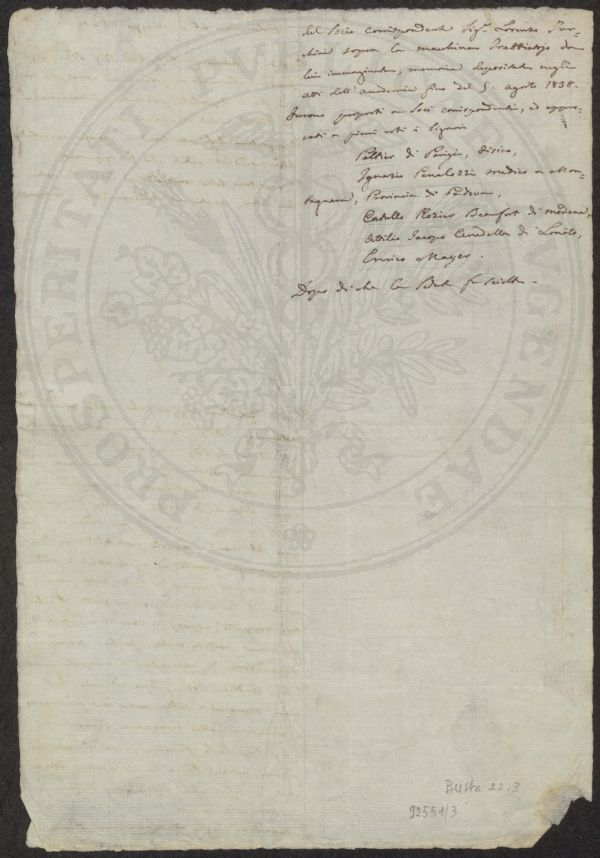 del Socio corrispondente Sigr. Lorenzo Tur-
chini sopra la macchina Trebbiatoja da
lui immaginata, memoria depositata negli
atti dell'accademia fino del 5. agosto 1838.
Furono proposti a Soci corrispondenti, ed appro-
vati a pieni voti i Signori
Peltier di Parigi, fisico,
Ignazio Penolazzi medico a Mon-
tagnana, Provincia di Padova,
Rozier Beaufort di Modena,
Attilio Jacopo Cenedella di Lonato,
Enrico Mayer.
Dopo di che la Seduta fu sciolta.
PROSPERITATI PUBLICAE AUGENDAE
Busta 22.3
92554/3